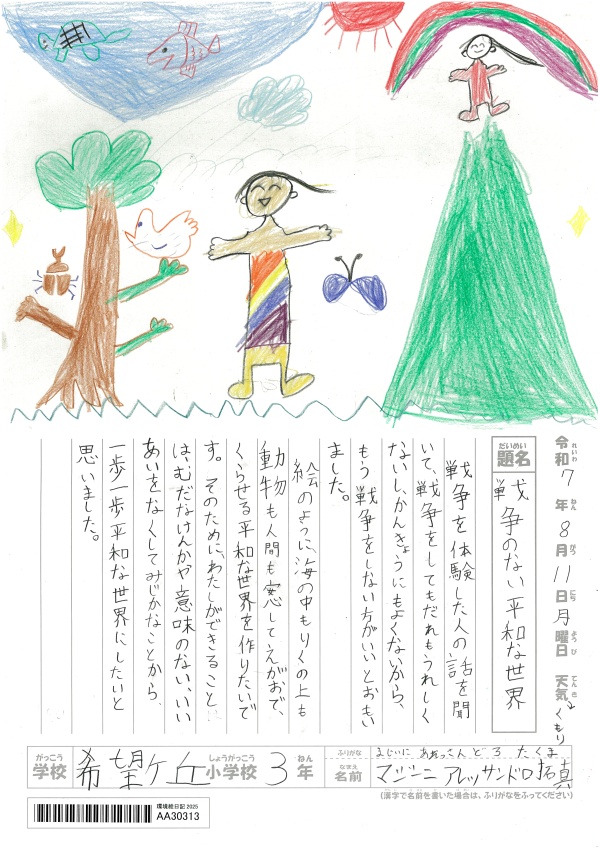 令和7年8月11日月曜日 天気 くもり
れいわ ねん がつ にち ようび てんき
だいめい
題名
戦争のない平和な世界
戦争を体験した人の話を聞
いて、戦争をしてもだれもうれしく
ないし、かんきょうにもよくないから、
もう戦争をしない方がいいとおもい
ました。
絵のように、海の中もりくの上も
動物も人間も安心してえがおで、
くらせる平和な世界を作りたいで
す。そのために、わたしができること
は、むだなけんかや意味のない、いい
あいをなくしてみじかなことから、
一歩一歩平和な世界にしたいと
思いました。
がっこう
学校
希望ケ丘
しょうがっこう
小学校
3
ねん
年
ふりがな
まじいに あれっさんどろ たくま
なまえ
名前
マジーニ アレッサンドロ拓真
(漢字で名前を書いた場合は、ふりがなをふってください)
環境絵日記 2025
AA30313